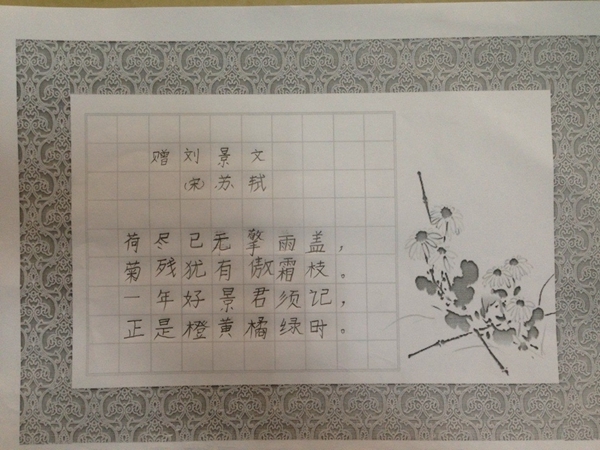 赠刘景文
(宋)苏轼
荷尽已无擎雨盖，
菊残犹有傲霜枝。
一年好景君须记，
正是橙黄橘绿时。